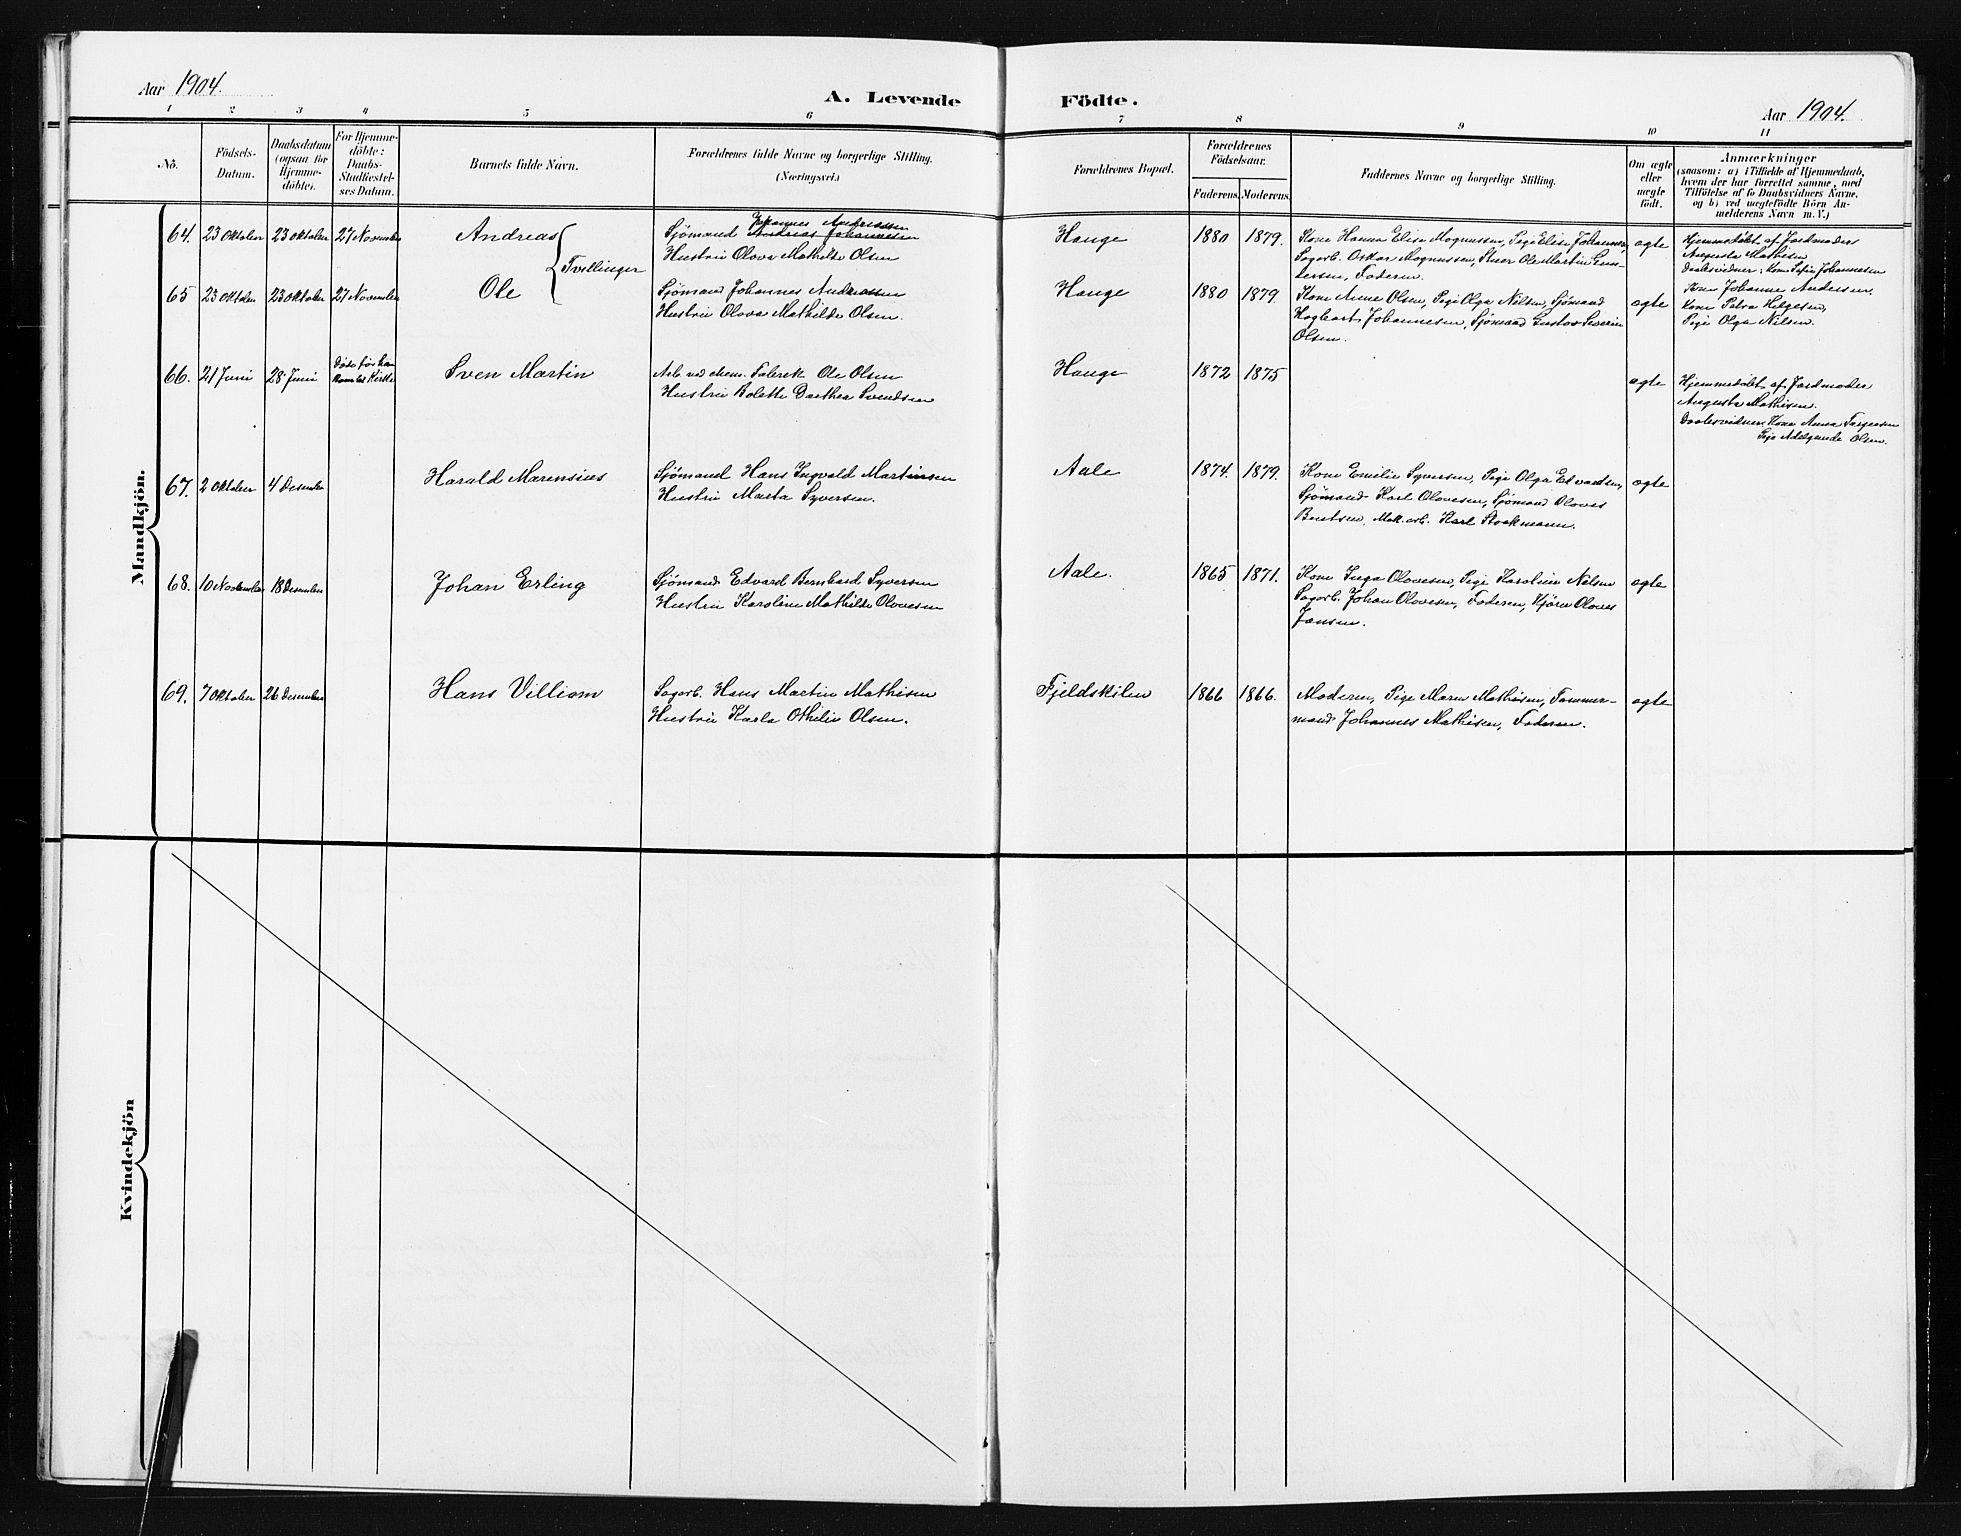 Aar 1904.
A. Levende Födte.
Aar 1904.
1 2 3 4 5 6 7 8 9 10 11
No.
Födsels-Datum.
Daabsdatum (ogsaa for Hjemmedöbte).
For Hjemmedöbte: Daabs-Stadfæstelses Datum.
Barnets fulde Navn.
Forældrenes fulde Navne og borgerlige Stilling.
(Næringsvei.)
Forældrenes Bopæl.
Forældrenes Födselsaar.
Faderens. Moderens.
Faddernes Navne og borgerlige Stilling.
Om ægte eller uægte födt.
Anmærkninger
(saasom: a) i Tilfælde af Hjemmedaab,
hvem der har forrettet samme, med
Tilföielse af to Daabsvidners Navne,
og b) ved uægtefödte Börn An-
melderens Navn m. V.)
Mandkjön.
64. 23 Oktober 23 Oktober 27 November Andreas Tvillinger
Johannes Andreassen
Sjømand Andreas Johannesen
Hustru Olava Mathilde Olsen
Hauge 1880 1879.
Kone Hanna Elise Magnussen, Pige Elise Johannesen,
Sagarb. Oskar Magnussen, Ole Martin Gun-
dersen, Faderen.
ægte
Hjemmedøbt af Jordmoder
Augusta Mathisen
Daabsvidner: Kone Sofie Johannesen
65 23 Oktober 23 Oktober 27 November Ole
Sjømand Johannes Andreassen
Hustru Olava Mathilde Olsen.
Hauge 1880 1879.
Kone Anne Olsen, Pige Olga Nilsen, Sjømand
Hagbart Johannesen, Sjømand Gustav Severin
Olsen.
ægte
Kone Johanne Andersen.
Kone Petra Helgesen,
Pige Olga Nilsen.
66. 21 Juni 28 Juni Døde før han Kirke Sven Martin
Arb. ved chem. Fabrik Ole Olsen
Hustru Bolette Dorthea Svendsen
Hauge 1872 1875
ægte
Hjemmedøbt af Jordmoder
Augusta Mathisen.
Daabsvidner, Kone Anna Torgersen
Pige Adelgunde Olsen.
67. 2 Oktober 4 Desember Harald Marensius
Sjømand Hans Ingvald Martinsen
Hustru Marta Syversen.
Aale 1874. 1879.
Kone Emilie Syversen, Pige Olga Edvardsen,
Sjømand Karl Olavesen, Sjømand Olaves
Bentsen, Mek. arb. Karl Stockmann.
ægte
68. 10 November 18 Desember Johan Erling
Sjømand Edvard Bernhard Syversen
Hustru Karoline Mathilde Olavesen
Aale. 1865 1871.
Kone Inga Olavesen, Pige Karoline Nilsen
Sagarb. Johan Olavesen, Faderen, Olaves
Jansen.
ægte
69. 7 Oktober 26 Desember Hans Villiam
Sagarb. Hans Martin Mathisen
Hustru Karla Othilie Olsen.
Fjeldskilen 1866 1866.
Moderen, Pige Maren Mathisen, Tømmer-
mand Johannes Mathisen, Faderen.
ægte
Kvindekjön